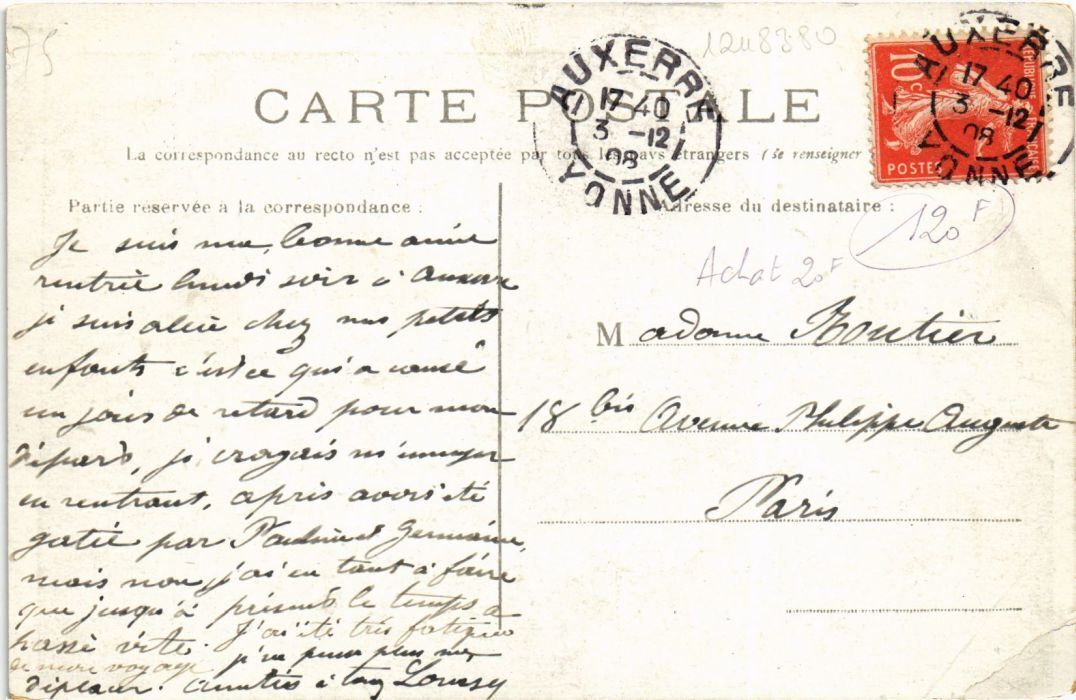 375
1248380
CARTE POSTALE
La correspondance au recto n'est pas acceptée par tous les pays étrangers (se renseigner
AUXERRE
17 40
3 -12
08
YONNE
AUXERRE
17 40
3 -12
08
YONNE
10c
POSTES
Partie réservée à la correspondance :
Je suis ma bonne amie
rentrée lundi soir à Auxerre
je suis allée chez mes petits
enfants c'est ce qui a causé
un jour de retard pour mon
départ, je croyais m'ennuyer
en rentrant, après avoir été
gatée par Germaine,
mais non j'ai eu tant à faire
que jusqu'à présent le temps a
passé vite. J'ai été très fatiguée
de mon voyage je ne peux plus me
déplacer. amitiés à tous
Adresse du destinataire :
120 F
Achat 20 F
Madame Routier
18 bis Avenue Philippe Auguste
Paris